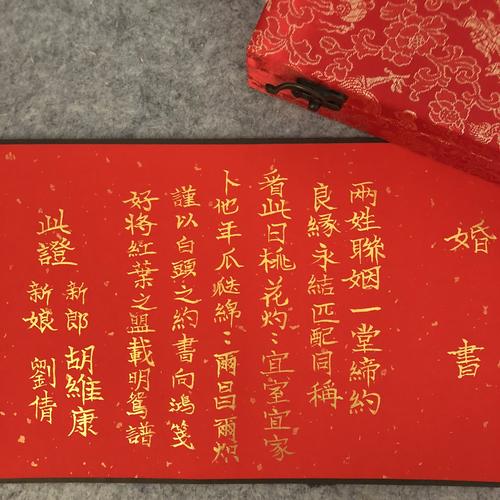 婚書
兩姓聯姻一堂締約
良緣永結匹配同稱
看此日桃花灼〻宜室宜家
卜他年瓜瓞綿〻爾昌爾熾
謹以白頭之約書向鴻箋
好將紅葉之盟載明鴛譜
此證
新郎 胡維康
新娘 劉倩